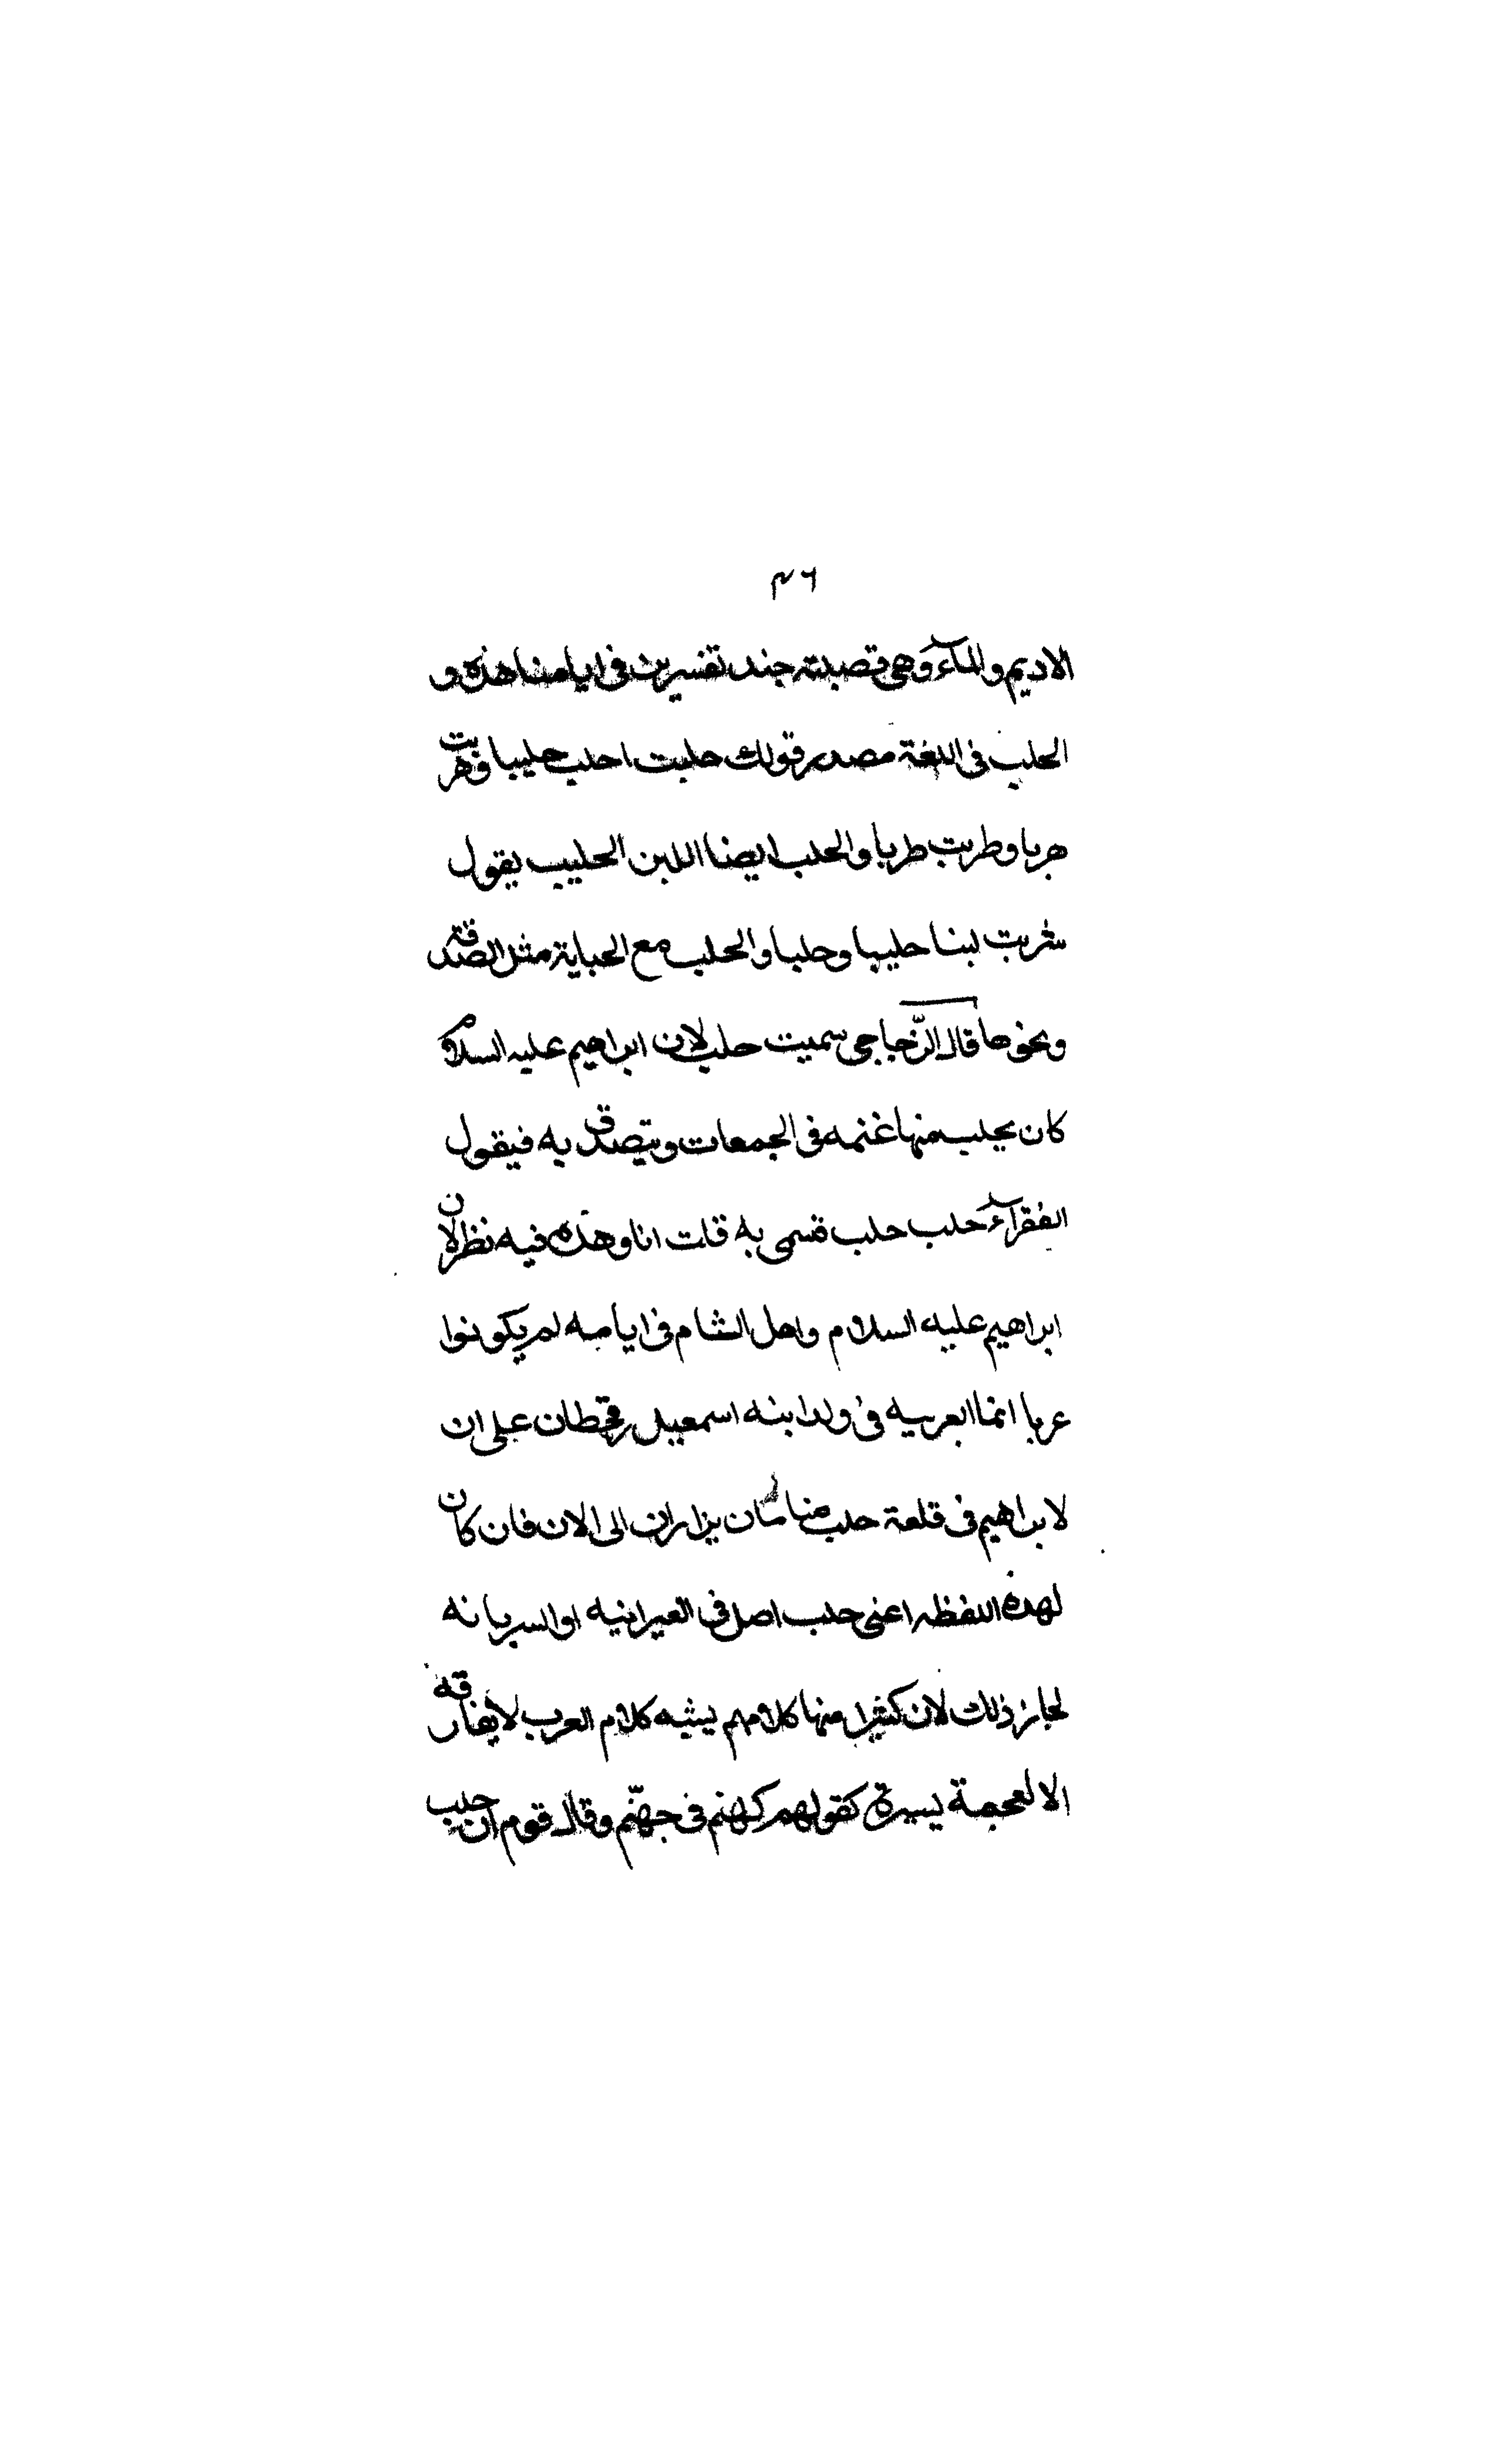 ٤٦
الاديم والمآء وهى قصبته جند تفسرين فى ايامنا هذه و
الحلب فى اللغة مصدر قولك حلبت احلب حليبا وهربت
هربا وطربت طربا والحلب ايضا اللبن الحليب يقول
شربت لبنا حليبا وحلبا والحلب مع الحباية مثل الصدقة
ونحوها قال الزّجاجى سميت حلب لان ابراهيم عليه السلام
كان يحلب منها غنمه فى الجمعات ويتصدق به فيقول
الفقرآء حلب حلب فسمى به قلت انا وهذه فيه نظر لان
ابراهيم عليه السلام واهل الشام فى ايامه لم يكونوا
عربا انما العربيه فى ولد ابنه اسمعيل وقحطان على ان
لابراهيم فى قلعة حلب مقامان يزاران الى الان فان كان
لهذه اللفظه اعنى حلب اصل فى العبرانيه او السريانه
لجاز ذلك لان كثيرا منها كلامهم يشبه كلام العرب لا يفارقه
الا لعجمة يسيرة كقولهم كهنم فى جهنّم وقال قوم ان حلب